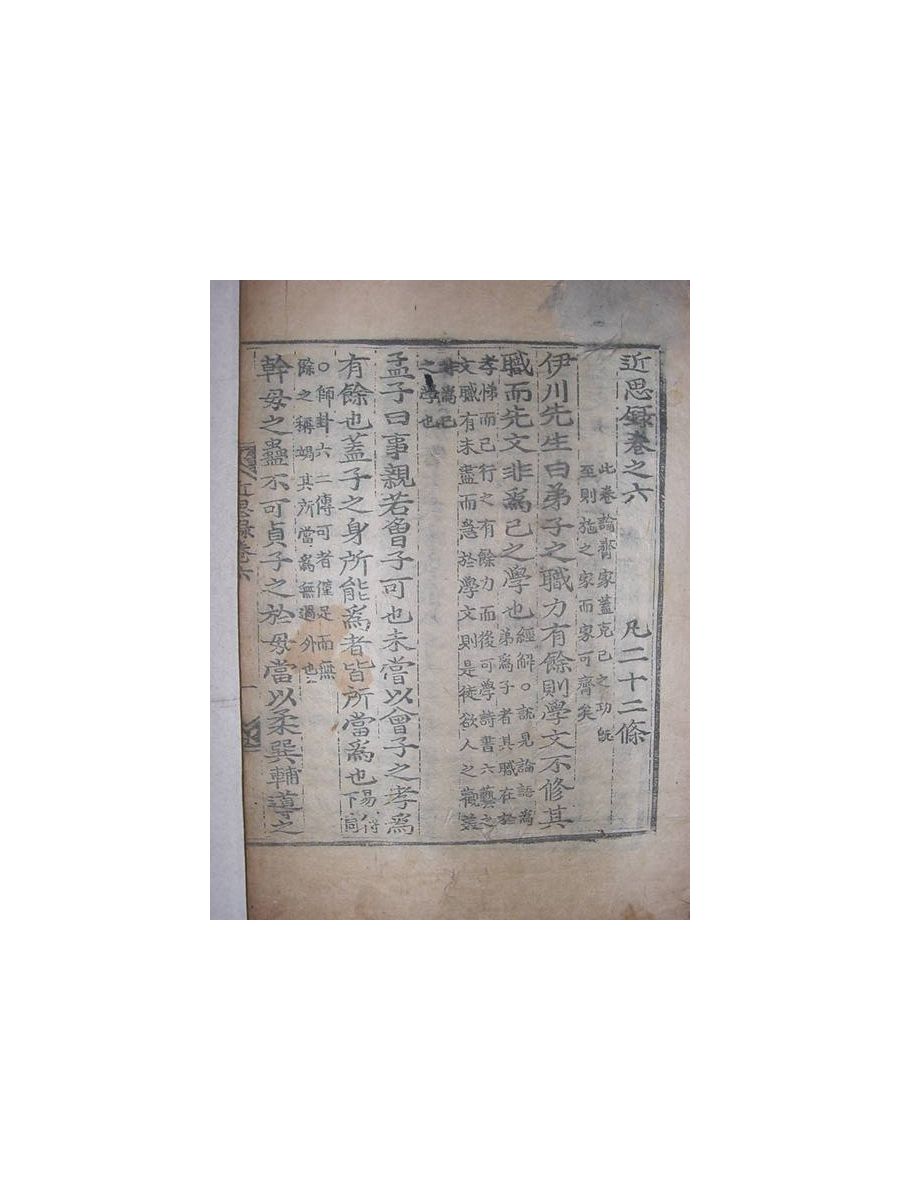 近思錄卷之六 凡二十二條
此卷論齊家蓋克己之功旣
至則施之家而家可齊矣
伊川先生曰弟子之職力有餘則學文不修其
職而先文非爲己之學也
經解○說見論語爲
弟爲子者其職在於
孝悌而已行之有餘力而後可學詩書六藝之
文職有未盡而急於學文則是徒欲人之觀美
非爲己
之學也
孟子曰事親若曾子可也未嘗以曾子之孝爲
有餘也蓋子之身所能爲者皆所當爲也
易傳
下同
○師卦六二傳可者僅足而無
餘之稱竭其所當爲無過外也
幹母之蠱不可貞子之於母當以柔巽輔導之
近思錄卷六